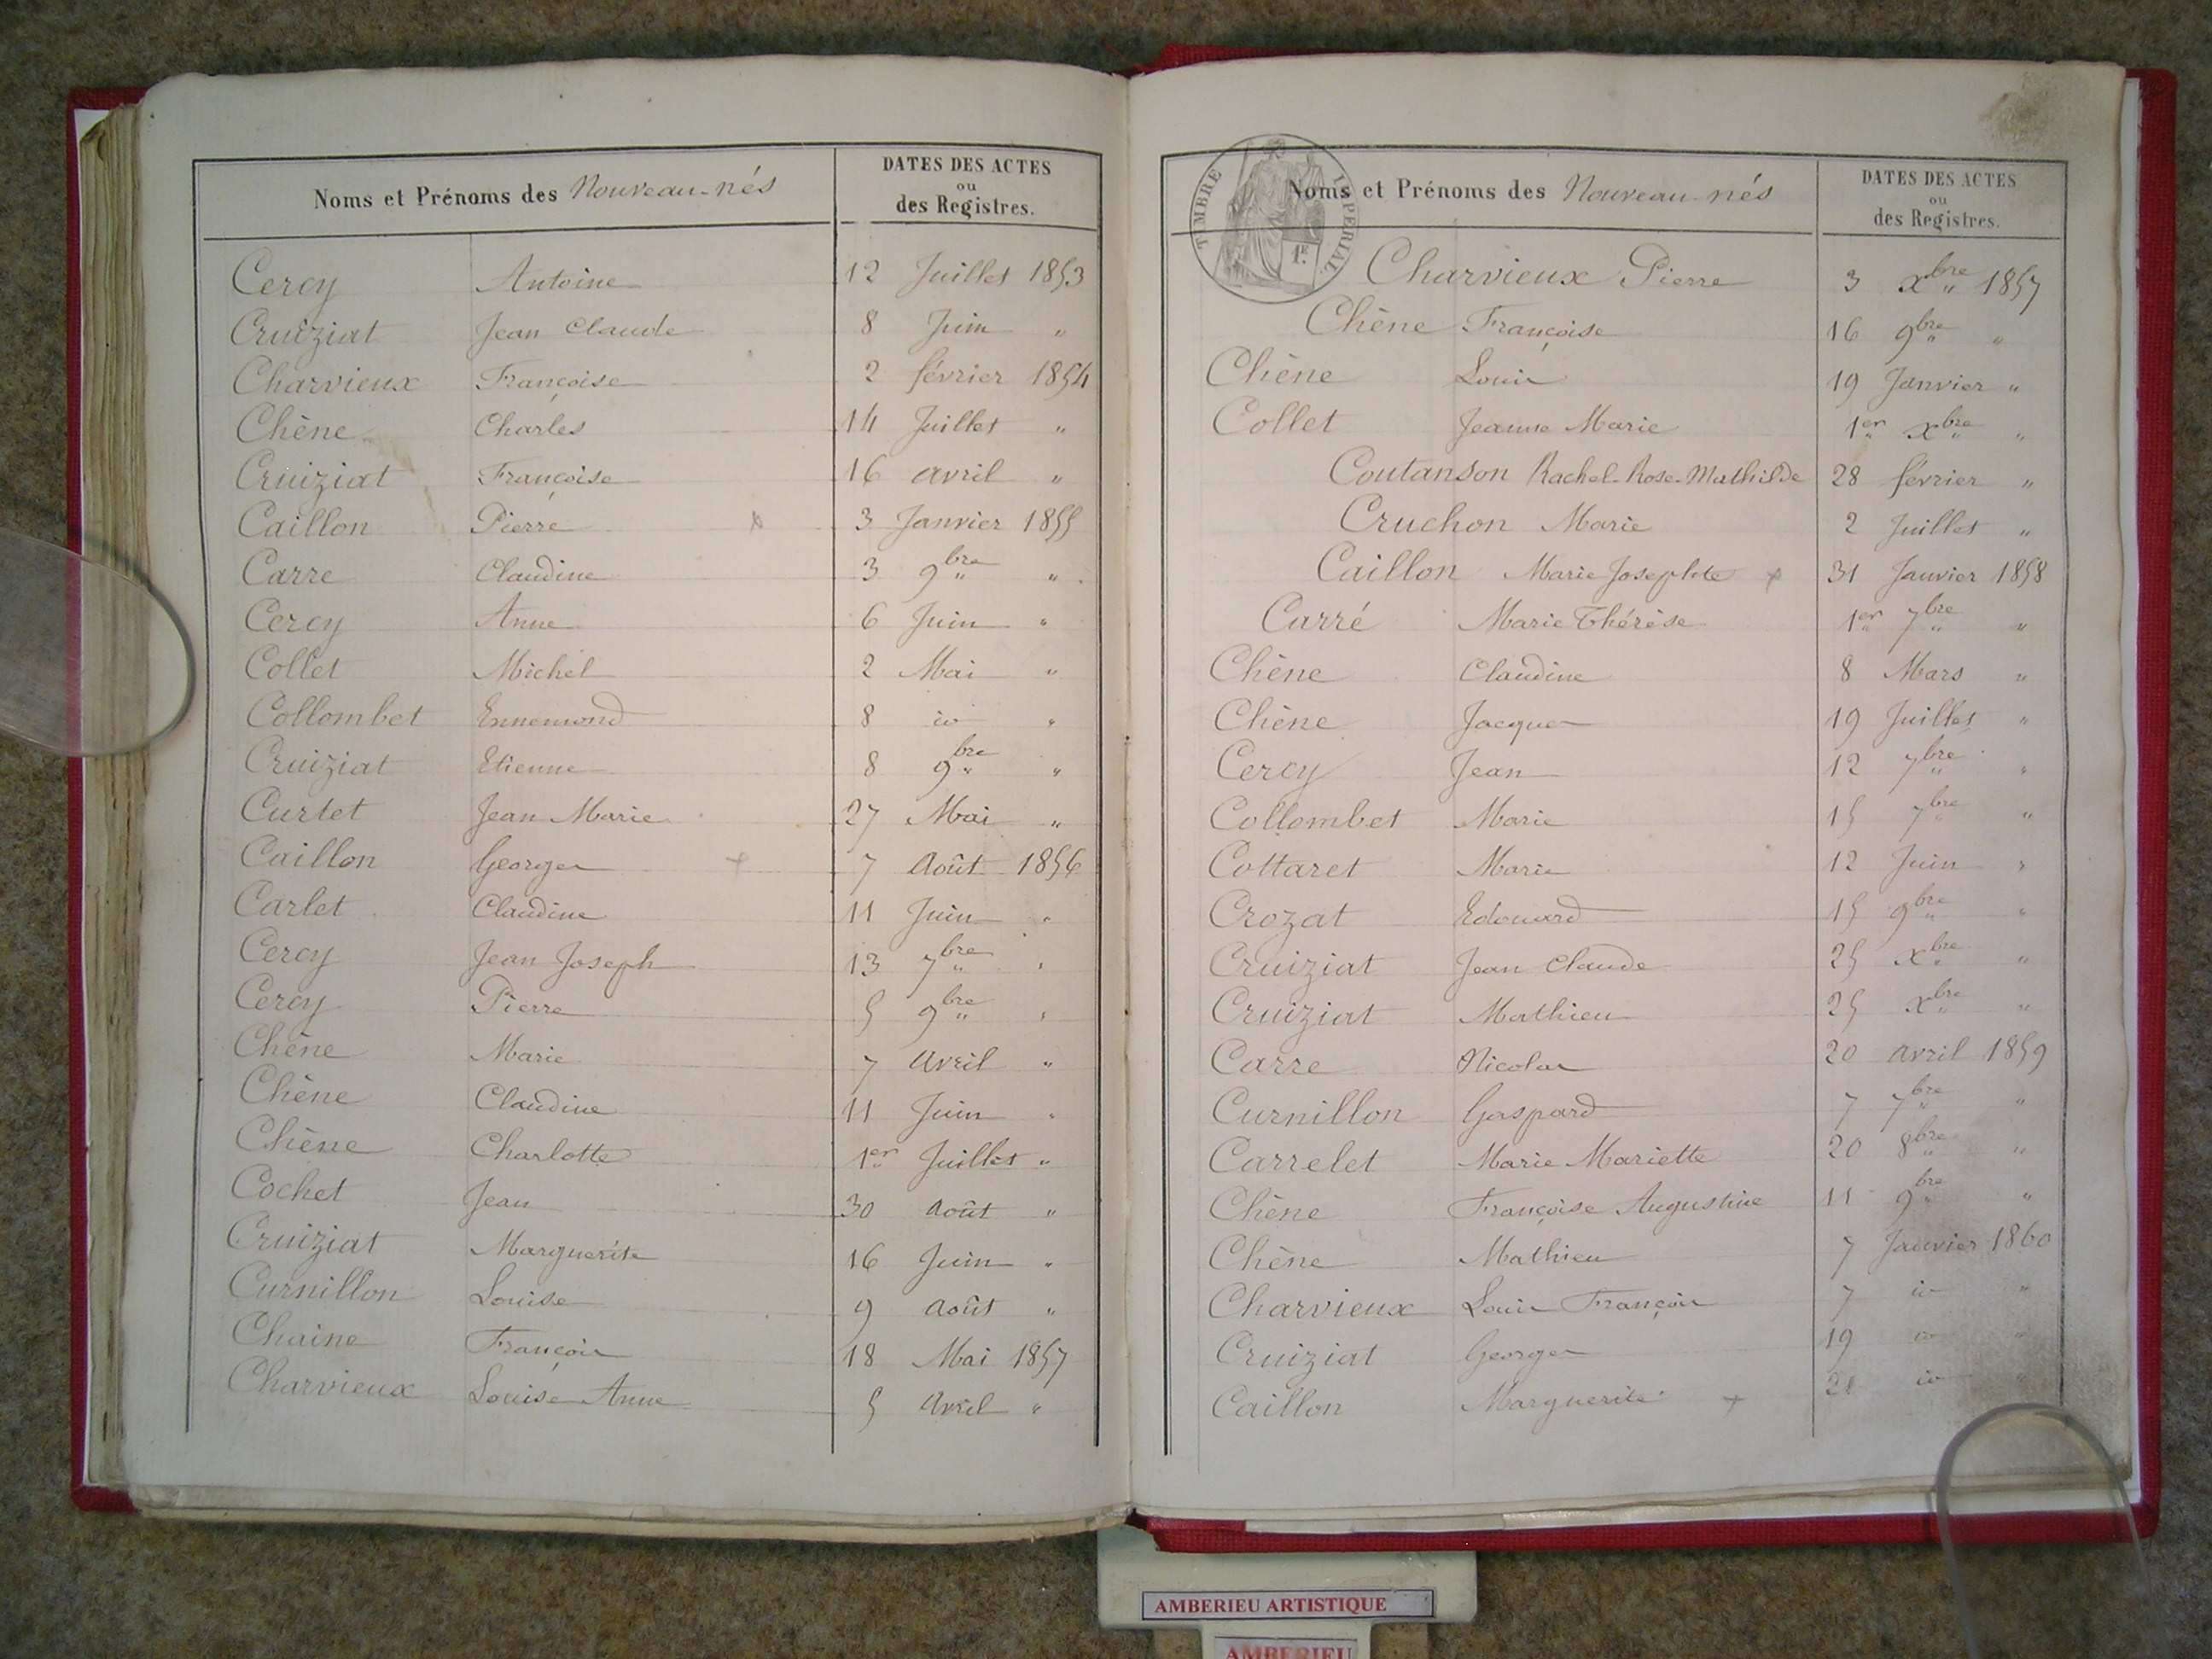 Noms et Prénoms des Nouveau-nés
DATES DES ACTES
ou
des Registres.
Cercy Antoine 12 Juillet 1853
Cruiziat Jean Claude 8 Juin "
Charvieux Françoise 2 février 1854
Chêne Charles 14 Juillet "
Cruiziat Françoise 16 avril "
Caillon Pierre x 3 Janvier 1855
Carre Claudine 3 9bre "
Cercy Anne 6 Juin "
Collet Michel 2 Mai "
Collombet Ennemond 8 id "
Cruiziat Etienne 8 9bre "
Curtet Jean Marie 27 Mai "
Caillon Georges x 7 Août 1856
Carlet Claudine 11 Juin "
Cercy Jean Joseph 13 7bre "
Cercy Pierre 5 9bre "
Chêne Marie 7 Avril "
Chêne Claudine 11 Juin "
Chêne Charlotte 1er Juillet "
Cochet Jean 30 Août "
Cruiziat Marguerite 16 Juin "
Curnillon Louise 9 Août "
Chaine François 18 Mai 1857
Charvieux Louise Anne 5 Avril "
TIMBRE IMPERIAL
1F.
Noms et Prénoms des Nouveau-nés
DATES DES ACTES
ou
des Registres.
Charvieux Pierre 3 Xbre 1857
Chêne Françoise 16 9bre "
Chêne Louis 19 Janvier "
Collet Jeanne Marie 1er Xbre "
Coutanson Rachel-Rose-Mathilde 28 février "
Cruchon Marie 2 Juillet "
Caillon Marie Josephte x 31 Janvier 1858
Carré Marie Thérèse 1er 7bre "
Chêne Claudine 8 Mars "
Chêne Jacques 19 Juillet "
Cercy Jean 12 7bre "
Collombet Marie 15 7bre "
Cottaret Marie 12 Juin "
Crozat Edouard 15 9bre "
Cruiziat Jean Claude 25 Xbre "
Cruiziat Mathieu 25 Xbre "
Carre Nicolas 20 avril 1859
Curnillon Gaspard 7 7bre "
Carrelet Marie Mariette 20 8bre "
Chêne Françoise Augustine 11 9bre "
Chêne Mathieu 7 Janvier 1860
Charvieux Louis François 7 id "
Cruiziat Georges 19 id "
Caillon Marguerite x id "
AMBERIEU ARTISTIQUE
AMBERIEU